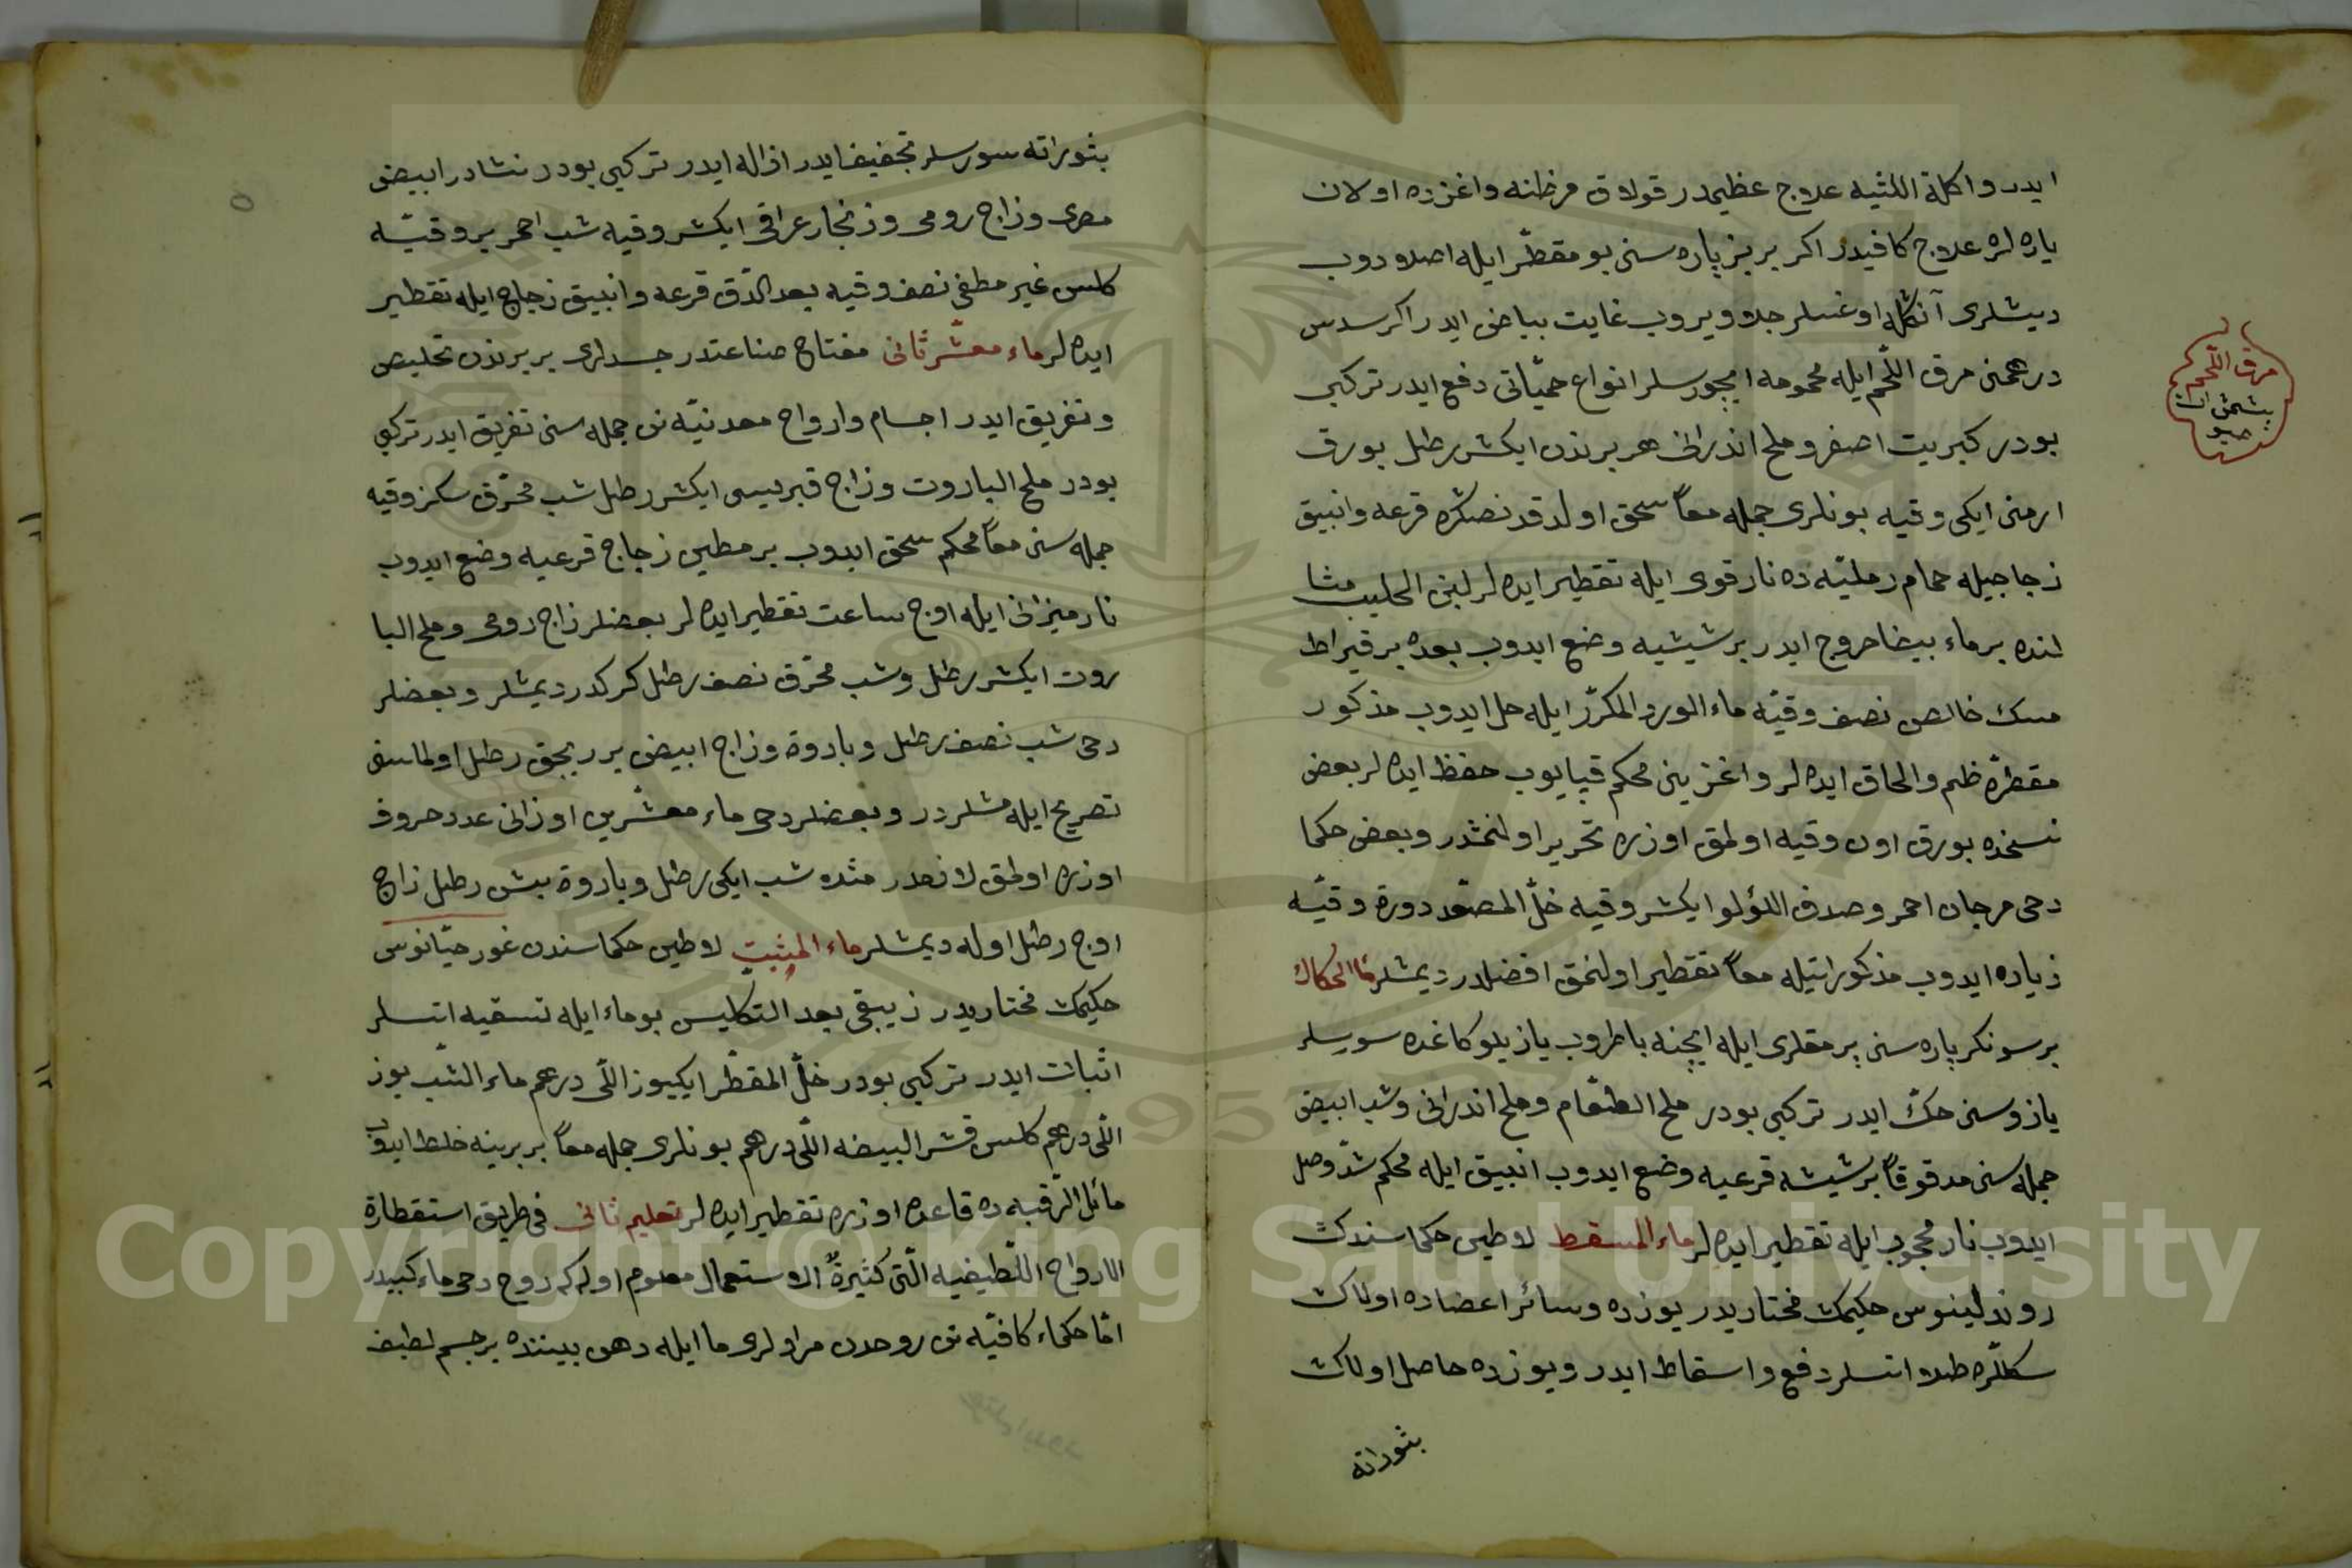 ايدر واكلة اللثيه علاج عظيمدر قولاق مرضنه واغزده اولان
ياره لره علاج كافيدر اكر بر بز پاره سنى بو مقطّر ايله اصلادوب
ديشلرى آنكله اوغسلر جلا ويروب غايت بياض ايدر اكر سدس
درهمنى مرق اللّحم ايله محمومه ايچورسلر انواع حميّاتى دفع ايدر تركيبى
بودر كبريت اصفر وملح اندرانى هر برندن ايكشر رطل بورق
ارمنى ايكى وقيه بونلرى جمله معاً سحق اولدقدنصكره قرعه وانبيق
زجاجيله حمام رمليّه ده نار قوى ايله تقطير ايده لر لبن الحليب مثا
لنده بر ماء بيضا خروج ايدر بر شيشيه وضع ايدوب بعده بر قيراط
مسك خالص نصف وقيّه ماء الورد المكرّر ايله حل ايدوب مذكور
مقطره ضم والحاق ايده لر واغزينى محكم قپايوب حفظ ايده لر بعض
نسخده بورق اون وقيه اولمق اوزره تحرير اولنمشدر وبعض حكما
دخى مرجان احمر وصدف اللؤلؤ ايكشر وقيه خلّ المصعّد دورة وقيّه
زياده ايدوب مذكوراتيله معاً تقطير اولنمق افضلدر ديمشلر ماء الحكاك
بر سونكر پاره سنى پرمقلرى ايله ايچنه باطروب يازيلو كاغده سورسلر
يازوسنى حكّ ايدر تركيبى بودر ملح الطعام وملح اندرانى وشب ابيض
جمله سنى مدقوقاً بر شيشه قرعيه وضع ايدوب انبيق ايله محكم شدّ وصل
ايدوب نار محجوب ايله تقطير ايده لر ماء المسقط لاطين حكماسندك
روندلينوس حكيمك مختاريدر يوزده وسائر اعضاده اولاك
سكللره طلا اتسلر دفع واسقاط ايدر ويوزده حاصل اولاك
بثوراته
مرق اللّحم
پيشمش ات
صيو
بثوراته سورسلر تجفيف ايدر ازاله ايدر تركيبى بودر نشادر ابيض
مصرى وزاج رومى وزنجار عراقى ايكشر وقيه شب احمر بر وقيّه
كلس غير مطفى نصف وقيه بعد الدّق قرعه وانبيق زجاج ايله تقطير
ايده لر ماء معشّر ثانى مفتاح صناعتدر جسدلرى بر برندن تخليص
وتفريق ايدر اجسام وارواح معدنيّه نن جمله سنى تفريق ايدر تركيبى
بودر ملح الباروت وزاج قبريسى ايكشر رطل شب محرّق سكز وقيه
جمله سنى معاً محكم سحق ايدوب بر مطين زجاج قرعيه وضع ايدوب
نار ميزانى ايله اوج ساعت تقطير ايده لر بعضلر زاج رومى وملح البا
روت ايكشر رطل وشب محرّق نصف رطل كركدر ديمشلر وبعضلر
دخى شب نصف رطل وباروة وزاج ابيض بر بچق رطل اولماسنى
تصريح ايله مشلردر وبعضلر دخى ماء معشّرين اوزانى عدد حروف
اوزره اولمق لازمدر مثده شب ايكى رطل وباروة بيش رطل زاج
اوج رطل اوله ديمشلر ماء المثبت لاطين حكماسندن غورحيّانوس
حكيمك مختاريدر زيبقى بعد التكليس بو ماء ايله تسقيه اتسلر
اثبات ايدر تركيبى بودر خلّ المقطّر ايكيوز اللّى درهم ماء الشّب يوز
اللّى درهم كلس قشر البيضه اللّى درهم بونلرى جمله معاً بر برينه خلط ايدوب
مائل الرّقبه ده قاعده اوزره تقطير ايده لر تعليم ثانى فى طريق استقطارة
الارواح اللّطيفيه الّتى كثيرة الاستعمال معلوم اوله كه روح دخى ماء كبيدر
امّا حكماء كافّيه نن روحدن مرادلرى ما ايله دهن بيننده بر جسم لطيف